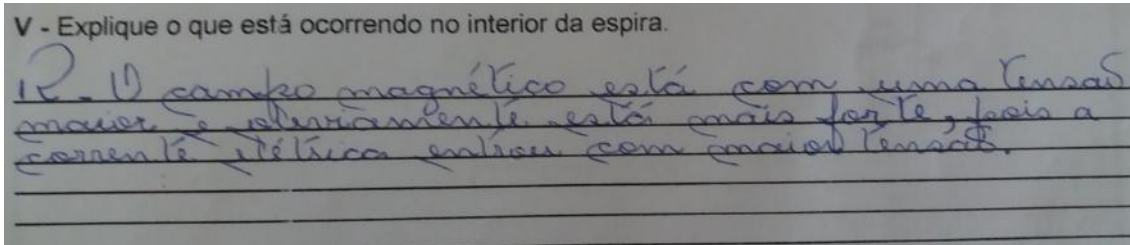 V - Explique o que está ocorrendo no interior da espira.
R - O campo magnético está com uma tensão
maior e obviamente está mais forte, pois a
corrente elétrica entrou com maior tensão.